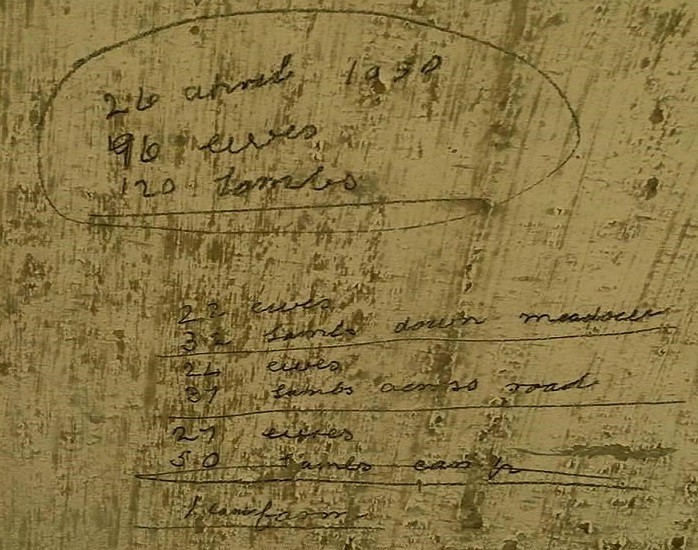 26 april 1950
96 ewes
120 lambs
22 ewes
32 lambs down meadow
ewes
31 lambs across road
27 ewes
50 lambs
farm